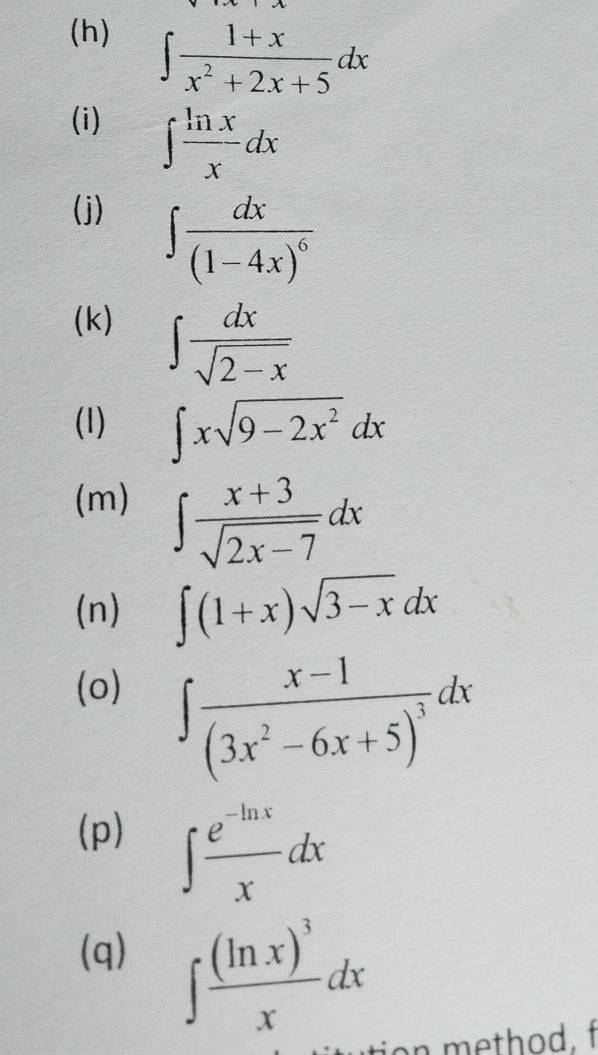 (h) ∫ (1+x)/(x² + 2x + 5) dx
(i) ∫ (ln x)/x dx
(j) ∫ dx/(1 − 4x)⁶
(k) ∫ dx/√(2 − x)
(l) ∫ x√(9 − 2x²) dx
(m) ∫ (x + 3)/√(2x − 7) dx
(n) ∫ (1 + x)√(3 − x) dx
(o) ∫ (x − 1)/(3x² − 6x + 5)³ dx
(p) ∫ e^(−ln x)/x dx
(q) ∫ (ln x)³/x dx
method, f